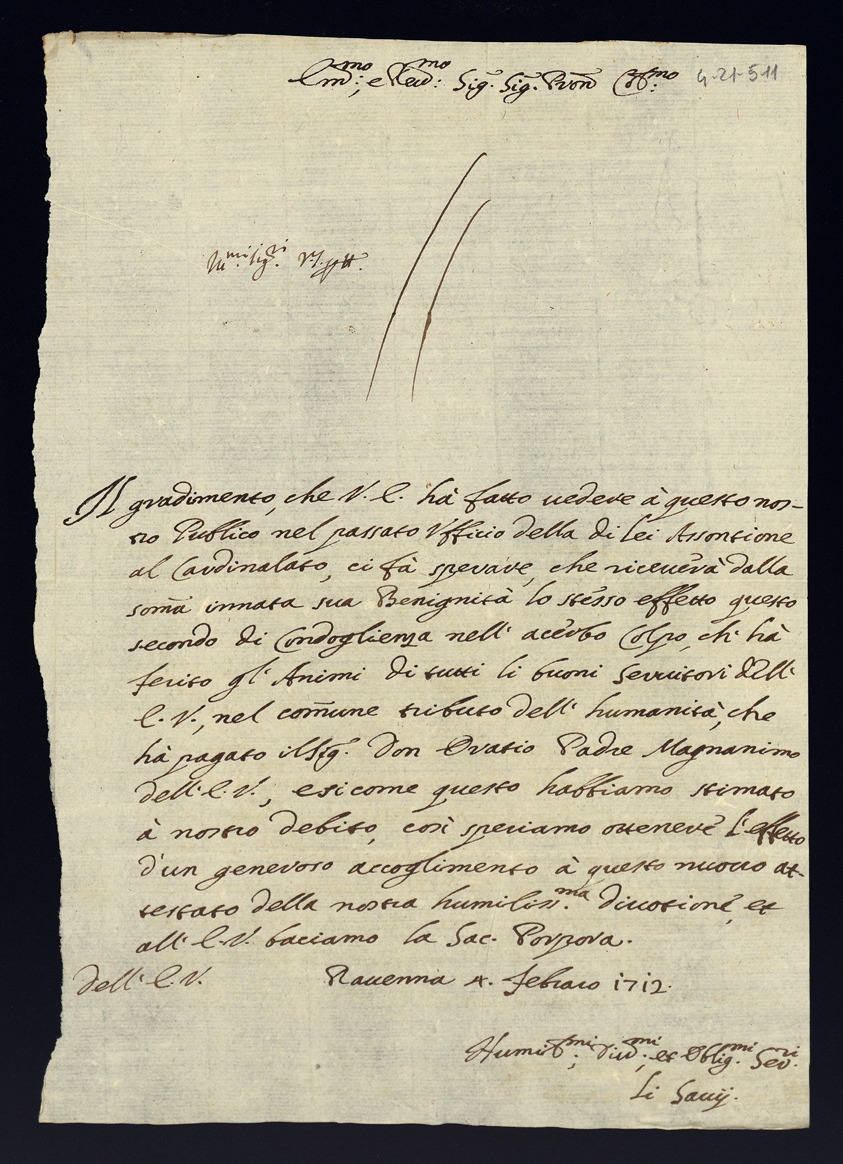 Em.mo: e Reu.mo: Sig. Sig. Pron Col.mo: 4-21-5-11
Il gradimento, che V. E. hà fatto uedere à questo nos-
tro Publico nel passato Vfficio della di Lei Assontione
al Cardinalato, ci fà sperare, che riceuerà dalla
som̃a innata sua Benignità lo stesso effetto questo
secondo di Condoglienza nell' acerbo Colpo, ch' hà
ferito gl' Animi di tutti li buoni Seruitori dell'
E. V., nel com̃une tributo dell' humanità, che
hà pagato il Sig. Don Oratio Padre Magnanimo
dell' E. V., e sicome questo habbiamo stimato
à nostro debito, così speriamo ottenere l'effetto
d'un generoso accoglimento à questo nuouo at-
testato della nostra humiliss.ma diuotione, et
all' E. V. baciamo la Sac. Porpora.
dell' E. V. Rauenna 4. febraro 1712.
Humil.mi: Diu.mi: et Oblig.mi Ser.ri
Li Sauij.